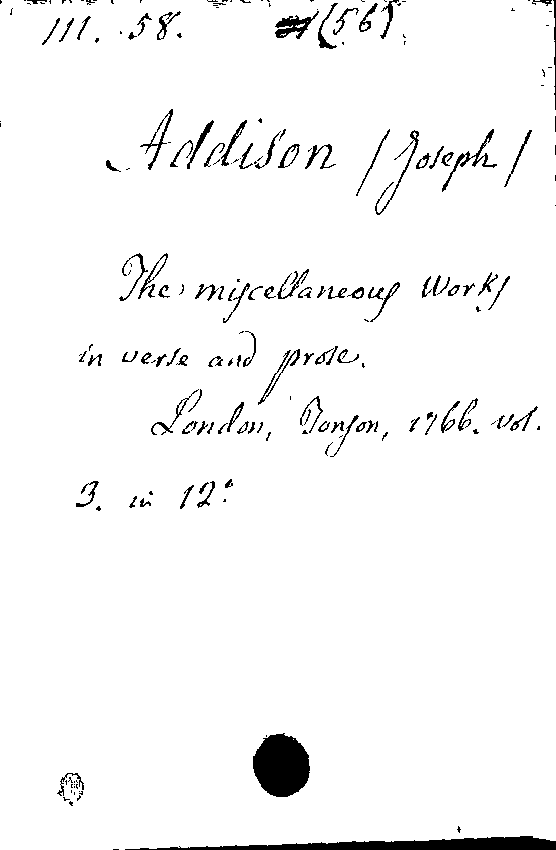 111. 58. (56)
Addison /Joseph/
The miscellaneous works
in verse and prose.
London, Tonson, 1766. vol.
3. in 12.°